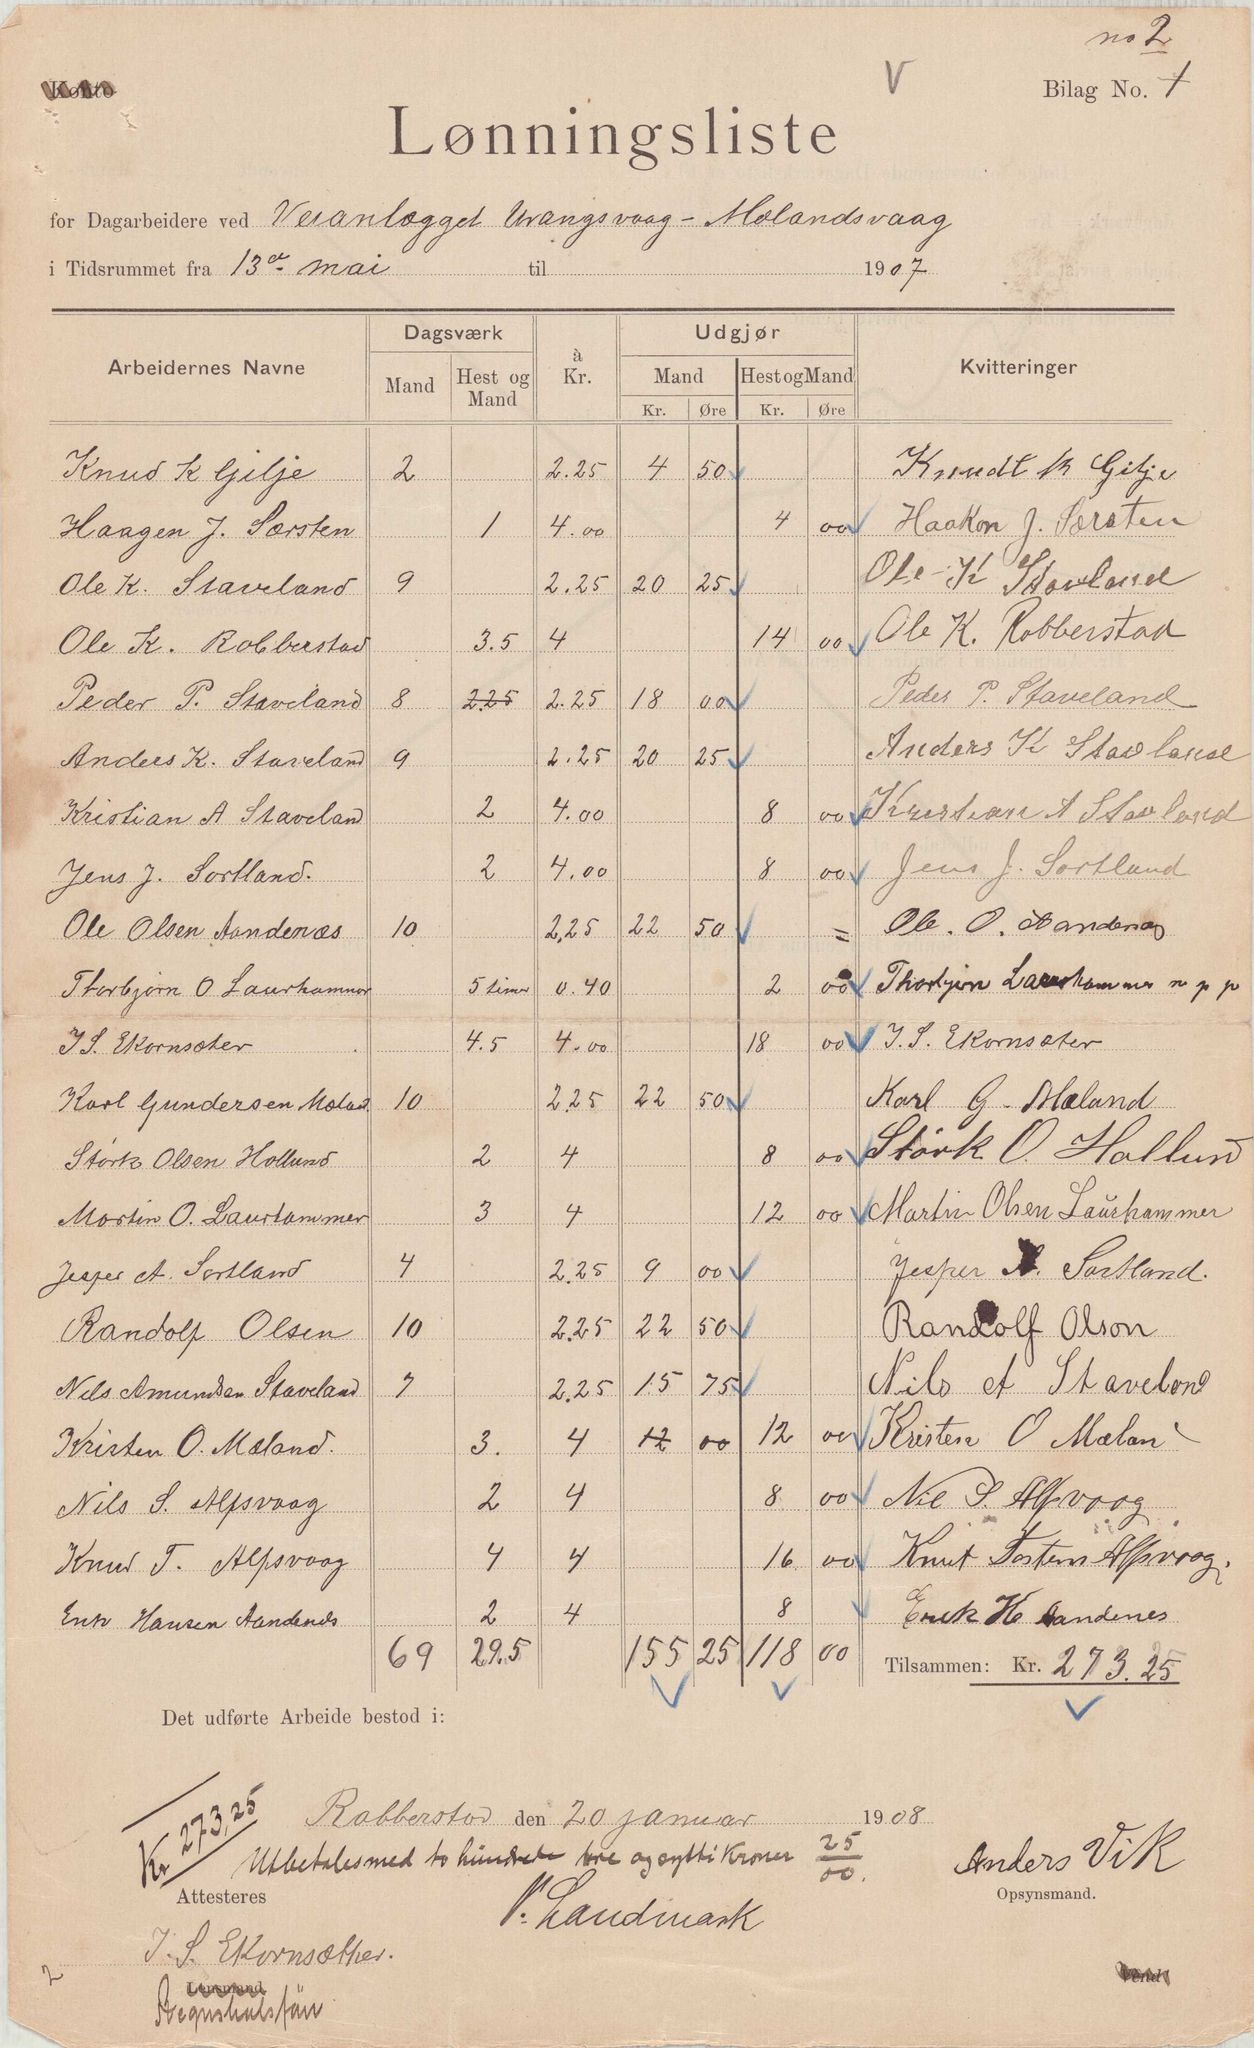 no 2
Konto
Bilag No. 1
Lønningsliste
for Dagarbeidere ved Veianlægget Urangsvaag - Mælandsvaag
i Tidsrummet fra 13de mai til 1907
Arbeidernes Navne Dagsværk à Kr. Udgjør Kvitteringer
Mand Hest og Mand Mand Hest og Mand
Kr. Øre Kr. Øre
Knud K Gilje 2 2.25 4 50 Knudt K Gilje
Haagen J. Sørsten 1 4.00 4 00 Haakon J. Sørsten
Ole K. Staveland 9 2.25 20 25 Ole K Stavland
Ole K. Robberstad 3.5 4 14 00 Ole K. Robberstad
Peder P. Staveland 8 2.25 2.25 18 00 Peder P. Staveland
Anders K. Staveland 9 2.25 20 25 Anders K Stavland
Kristian A Staveland 2 4.00 8 00 Kristian A Stavland
Jens J. Sortland. 2 4.00 8 00 Jens J. Sortland
Ole Olsen Aandenæs 10 2,25 22 50 = Ole. O. Aandenæs
Thorbjørn O Laurhammer 5 timer 0.40 2 00 Thorbjørn Laurhammer m p p
J S. Ekornsæter 4.5 4.00 18 00 J. S. Ekornsæter
Karl Gundersen Mæland 10 2.25 22 50 Karl G. Mæland
Størk Olsen Hollund 2 4 8 00 Størk O. Hollund
Martin O. Laurhammer 3 4 12 00 Martin Olsen Laurhammer
Jesper A. Sortland 4 2.25 9 00 Jesper A. Sortland.
Randolf Olsen 10 2.25 22 50 Randolf Olson
Nils Amundsen Staveland 7 2.25 15 75 Nils A Staveland
Kristen O. Mæland. 3. 4 12 00 12 00 Kristen O Mælan
Nils S. Alfsvaag 2 4 8 00 Nil S. Alfsvaag
Knud T. Alfsvaag 4 4 16 00 Knut Alfsvaag.
Erik Hansen Aandenæs 2 4 8 Erik H Aandenes
69 29.5 155 25 118 00 Tilsammen: Kr. 273.25
Det udførte Arbeide bestod i:
Kr 273,25
Robberstad den 20 januar 1908
Utbetales med to hundrede tre og sytti Kroner 25/00.
Anders Vik
Attesteres
Opsynsmand.
P. Landmark
J. S. Ekornsæther.
2
Lensmand
Regnskabsfør
Vend!